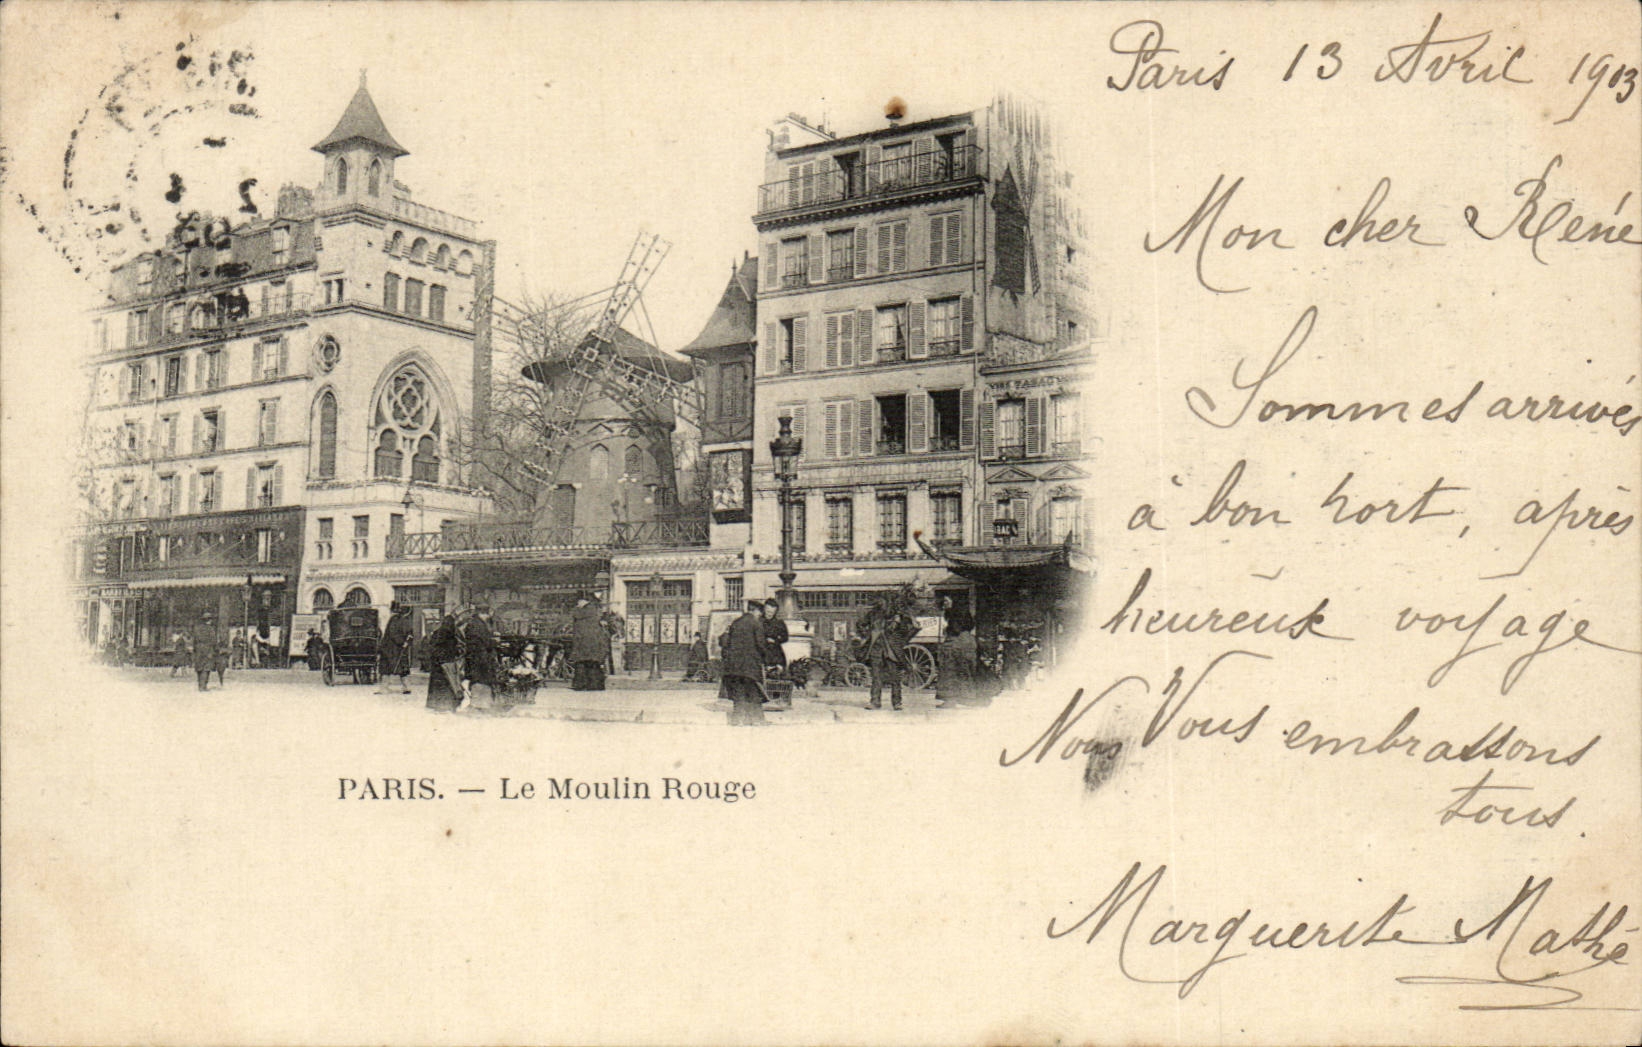 Paris 13 Avril 1903
Mon cher René
Sommes arrivés
à bon port, après
heureux voyage
Nous Vous embrassons
tous.
Marguerite Mathé
PARIS. — Le Moulin Rouge